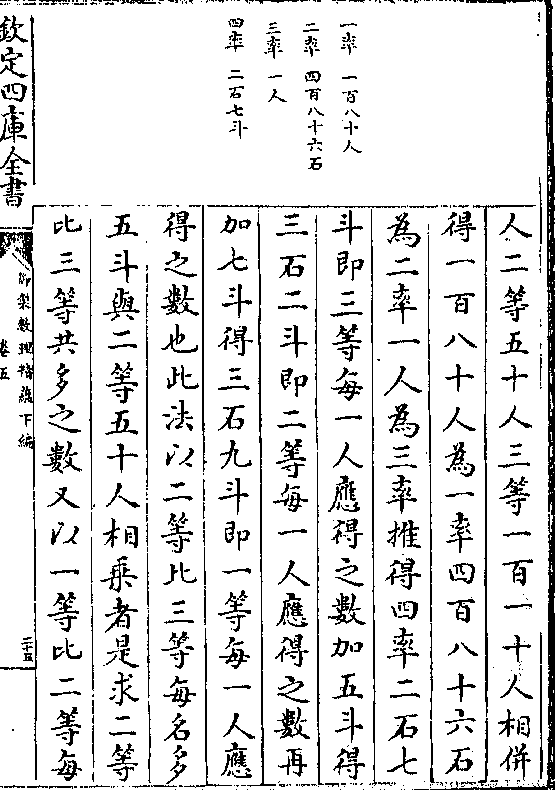 一率 一百八十人
二率 四百八十六石
三率 一人
四率 二石七斗
人二等五十人三等一百一十人相併
得一百八十人為一率四百八十六石
為二率一人為三率推得四率二石七
斗即三等每一人應得之數加五斗得
三石二斗即二等每一人應得之數再
加七斗得三石九斗即一等每一人應
得之數也此法以二等比三等每名多
五斗與二等五十人相乗者是求二等
比三等共多之數又以一等比二等每
欽定四庫全書
御製數理精藴下編
卷五
二十五